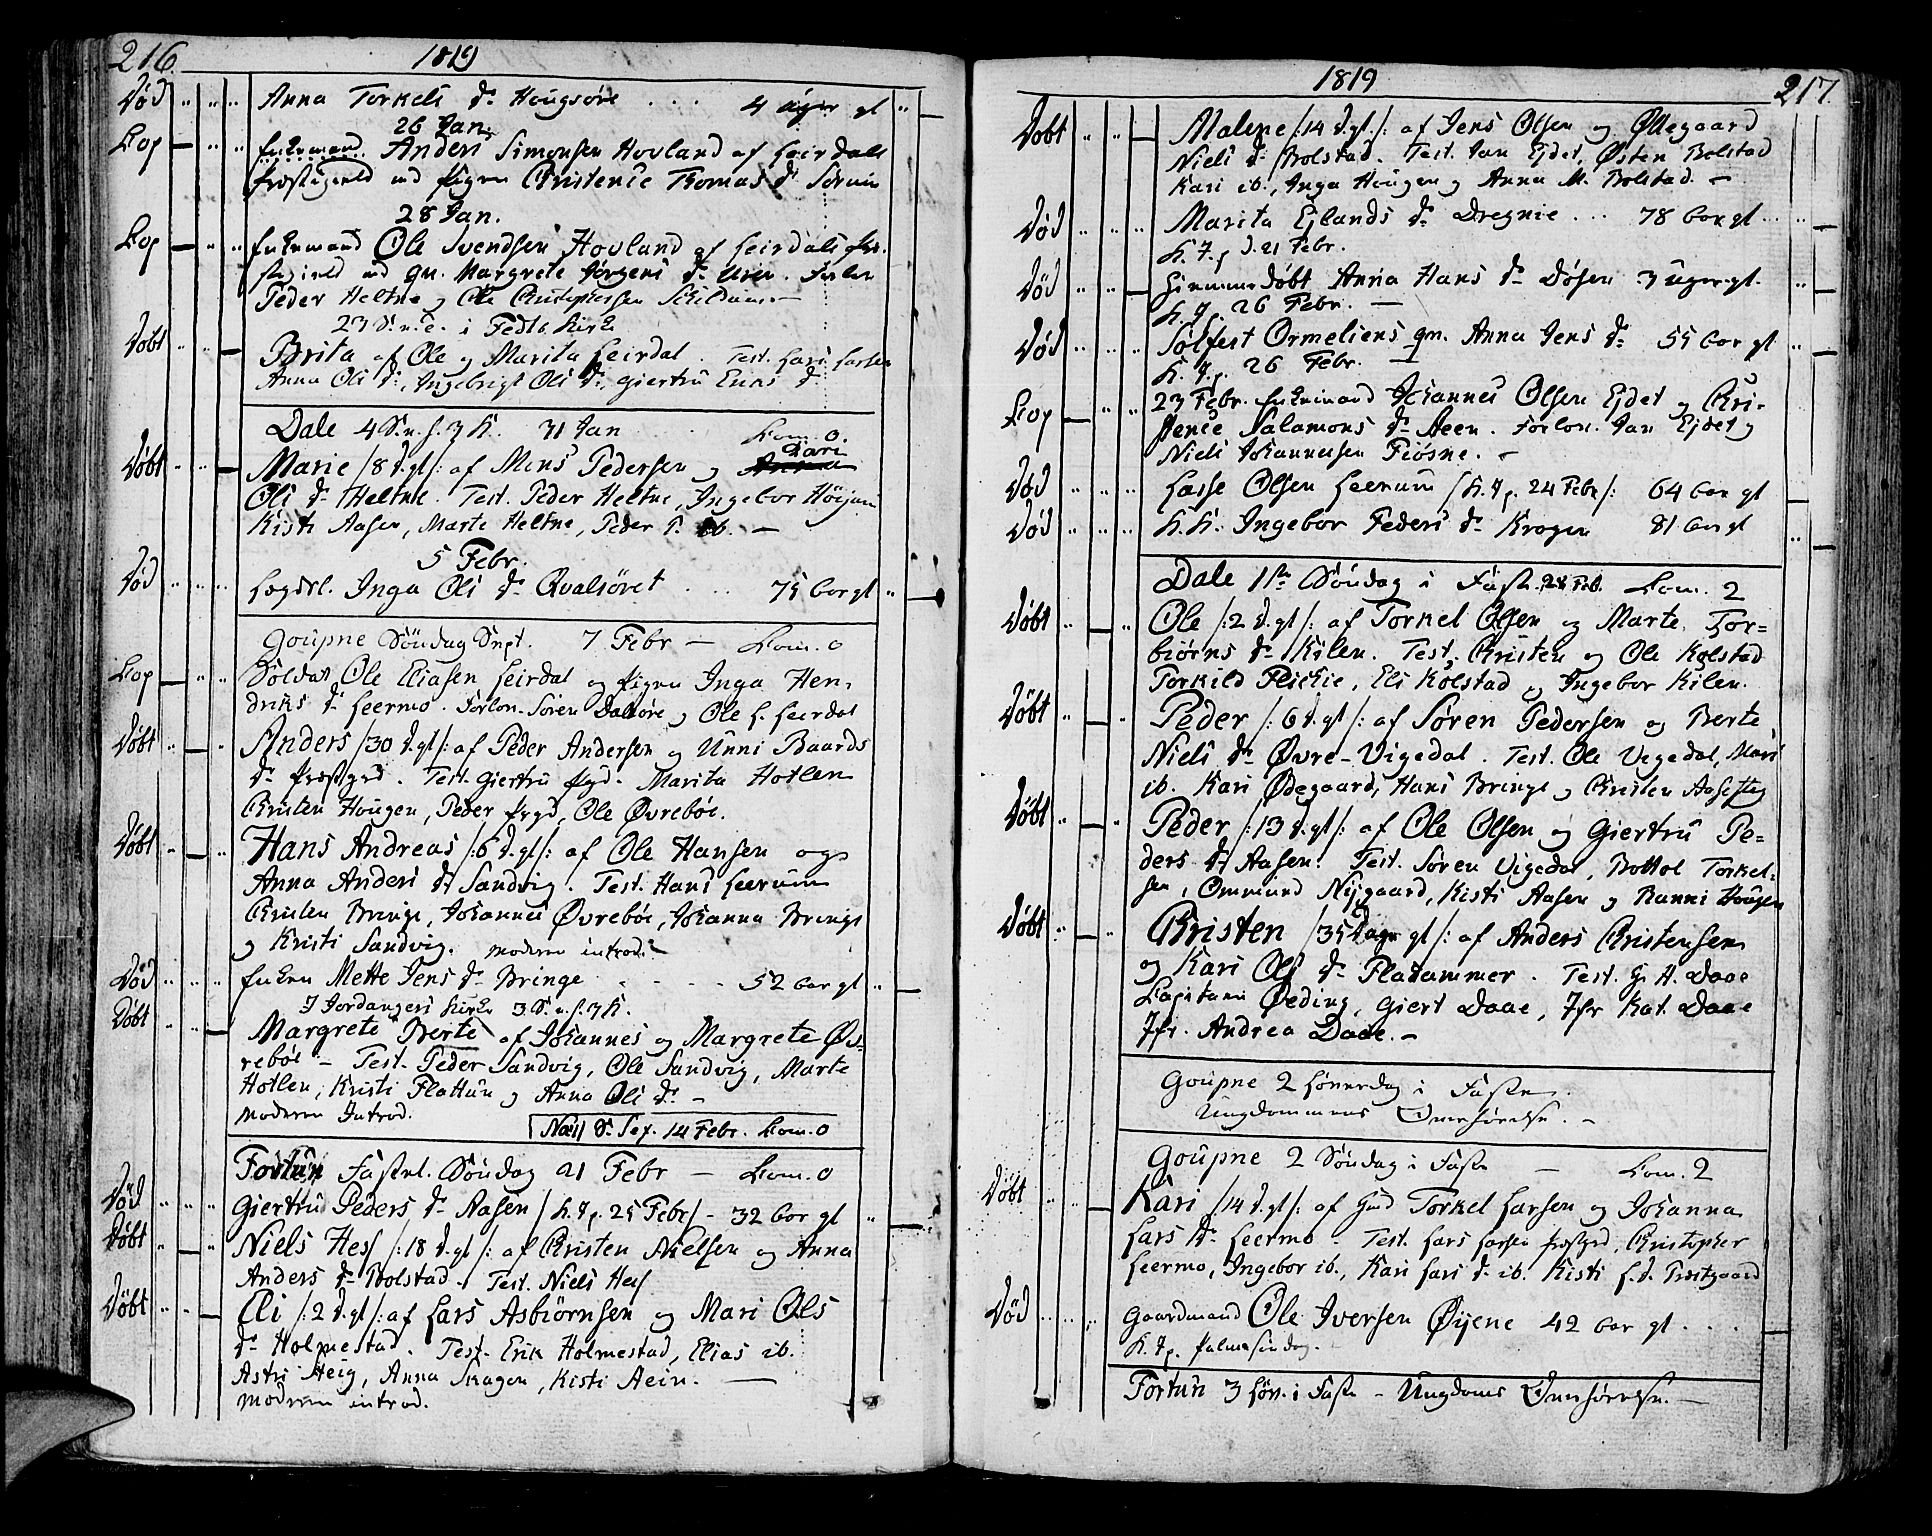 216.
1819
Død Anna Torkels Dr Hougsøre . . . 4 uger gl
26 Jan.
Cop Enkemand Anders Simonsen Hovland af Leirdals
Præstegield med Pigen Christence Thomas Dr
28 Jan.
Cop Enkemand Ole Svendsen Hovland af Leirdals Præ-
stegield med qv. Margrete Jørgens Dr Uren. Forlov
Peder Heltne og Ole Christophersen
23 S. n. T. i Fedts Kirke
Døbt Brita af Ole og Marita Leirdal. Test. Lars Larsen
Anna Ols Dr, Ingebrigt Ols Dr, Giertru Dr
Dale 4 S. n. h. 3 K. 31 Jan Com. 0.
Døbt Marie /8 D. gl/: af Mons Pedersen og Kari
Ols Dr Heltne. Test. Peder Heltne, Ingebor
Kisti Aasen, Marte Heltne, Peder P. ib. —
5 Febr.
Død Lægdsl. Inga Ols Dr Qvalsøret . . . 75 aar gl
Goupne Søndag Sept. 7 Febr — Com. 0
Cop Soldat Ole Eliasen Leirdal og Pigen Inga Hen-
driks Dr Leermo. Forlov. Søren Dalsøre og Ole L. Leirdal
Døbt Anders /30 D. gl/: af Peder Andersen og Unni Baards
Dr Præstgrd. Test. Giertru Pgd. Marita Hotlen
Christen Hougen, Peder Prgd, Ole Øvrebøe.
Døbt Hans Andreas /:6 D. gl/: af Ole Hansen og
Anna Anders Dr Sandvig. Test. Hans Leerum
Christen Bringe, Johannes Øvrebøe, Johanna Bringe
og Kristi Sandvig. Moderen introd. —
Død Enken Mette Jens Dr Bringe . . . . 52 aar gl
I Jordangers Kirke 3 S. n. h. 3 K.
Døbt Margrete Berte af Johannes og Margrete Øv-
rebøe — Test. Peder Sandvig, Ole Sandvig, Marte
Hotlen, Kristi Flattun og Anna Ols Dr —
Moderen Introd.
S. Sex. 14 Febr. Com. 0
Fortun Fastel. Søndag 21 Febr — Com. 0
Død Giertru Peders Dr Aasen /K. J. p. 25 Febr/ - 32 aar gl
Døbt Niels Hess /:18 D. gl/: af Christen Nielsen og Anna
Anders Dr Bolstad. Test. Niels Hess
Døbt Eli /:2 D. gl/: af Lars Asbiørnsen og Mari Ols
Dr Holmestad. Test. Erik Holmestad, Elias ib.
Astri Heig, Anna Skagen, Kisti Aein. —
Moderen introd.
1819
217.
Døbt Malene /:14 D. gl./: af Jens Olsen og Ødegaard
Niels Dr Bolstad. Test. Jan Ejdet, Østen Bolstad
Kari ib., Inga Hougen og Anna M. Bolstad. —
Død Marita Ejlands Dr Dregnie . . . 78 aar gl
K. J. p. d. 21 Febr.
Død Hiemmedøbt Anna Hans Dr Døsen 3 uger gl.
K. J. p. 26 Febr. —
Død Solfest Ormeliens qv. Anna Jens Dr 55 aar gl
K. J. p. 26 Febr. —
Cop 23 Febr. Enkemand Johannes Olsen Ejdet og Chri-
stence Salamons Dr Aeen. Forlov. Jan Ejdet og
Niels Johannessen Fiøsne. —
Død Lasse Olsen Leerum /K. J. p. 24 Febr/: 64 aar gl
Død K. K. Ingebor Peders Dr Krogen 81 aar gl
Dale 1ste Søndag i Faste 28 Feb. Com. 2
Døbt Ole /:2 D. gl/: af Torkel Olsen og Marte Tor-
biørns Dr Kilen. Test. Christen og Ole Kolstad
Torkild Flickie, Eli Kolstad og Ingebor Kilen.
Døbt Peder /:6 D. gl/: af Søren Pedersen og Berte
Niels Dr Øvre-Vigedal. Test. Ole Vigedal, Mari
ib. Kari Ødegaard, Hans Bringe og Christen
Døbt Peder /:13 D. gl/: af Ole Olsen og Giertru Pe-
ders Dr Aasen. Test. Søren Vigedal, Bottol Torkel-
sen, Ommund Nygaard, Kisti Aasen og Ranni Hougen
Døbt Christen /35 Dage gl/: af Anders Christensen
og Kari Ols Dr Fladhammer. Test. H. Daae
Capitain Øeding, Giert Daae, Jfr Kat. Daae
Jfr. Andrea Daae. —
Goupne 2 Løverdag i Faste.
Ungdommens Overhørelse. —
Goupne 2 Søndag i Faste — Com. 2
Døbt Kari /14 D. gl/: af Torkel Larsen og Johanna
Lars Dr Leermo — Test. Lars Larsen Præstgrd, Christopher
Leermo, Ingebor ib., Kari Lars D. ib. Kisti L. D. Præstgaard
Død Gaardmand Ole Iversen Øijene 42 aar gl . . .
K. J. p. Palmesøndag.
Fortun 3 Løv. i Faste — Ungdoms Overhørelse. —